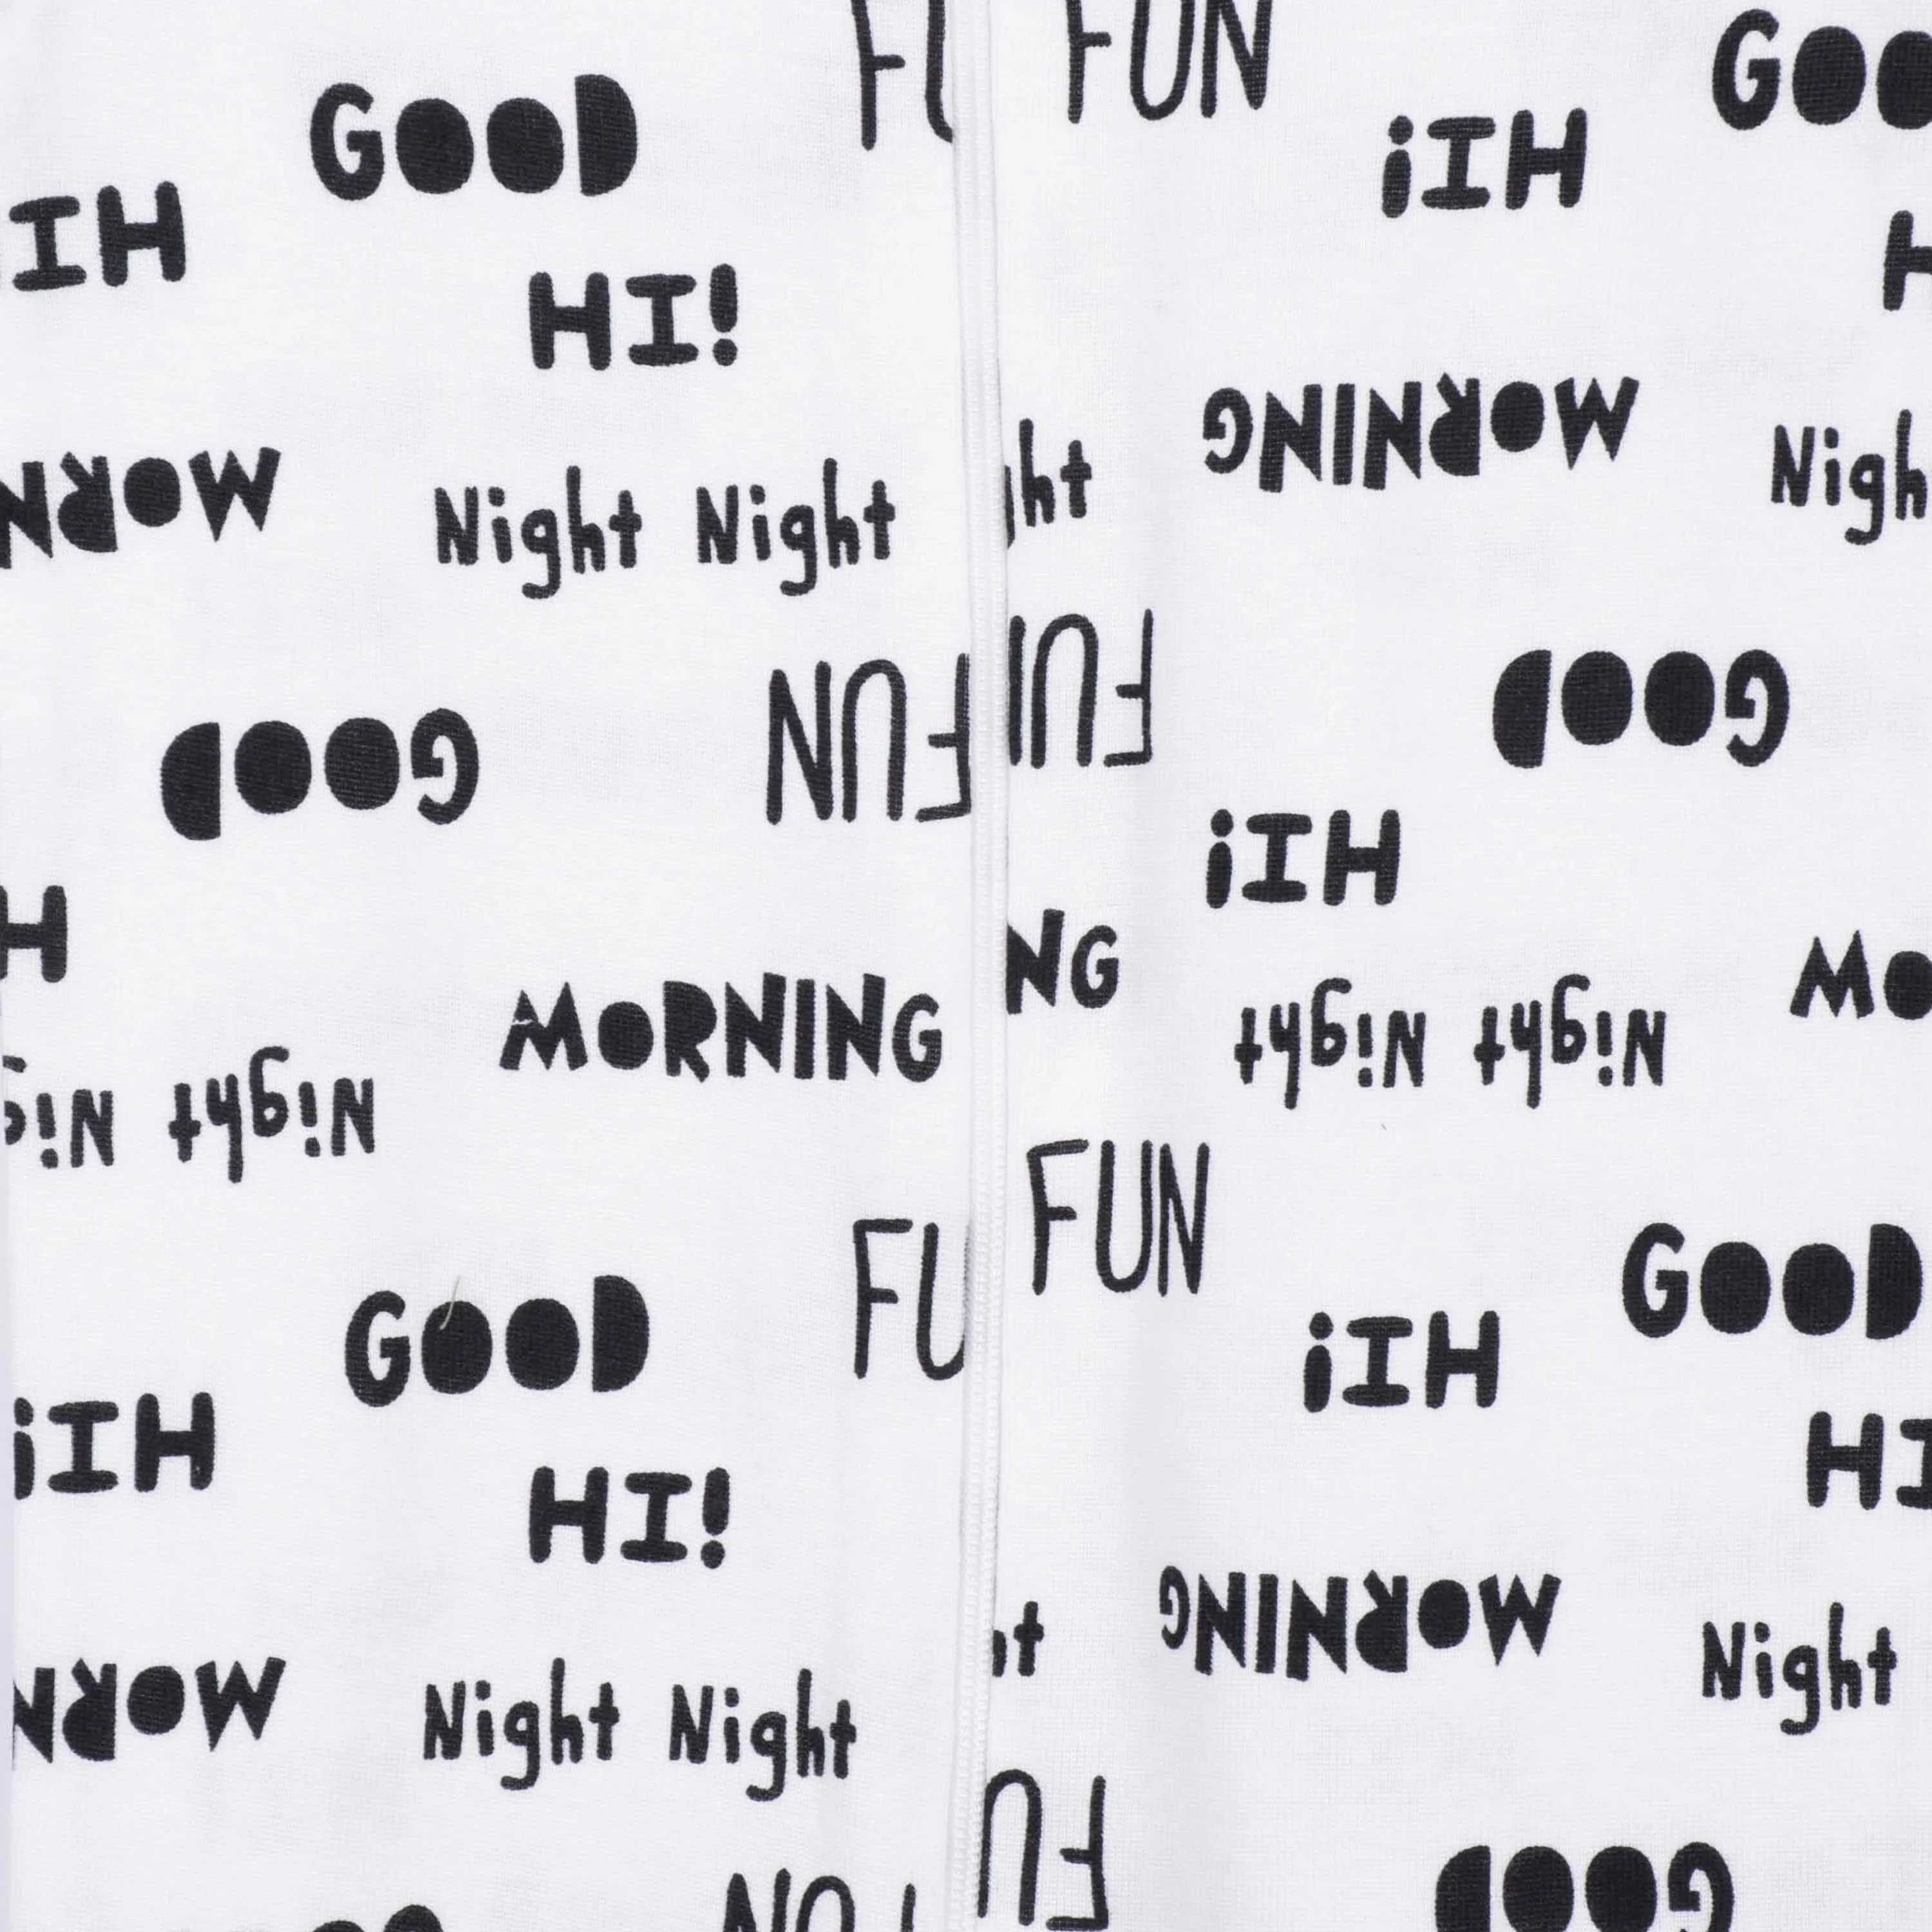 FU FUN
GOOD GOO
HI!
HI
HI!
H
MORNING
MORN Night Night ght Nigh
FUN FUN
GOOD
GOOD
HI!
H
NG
MORNING MO
Night Night
Night Nig
FUN
FU
GOOD
GOOD
HI!
HI!
HI!
HI
MORNING
MORN
Night Night ht Night
FU
FUN
GOOD